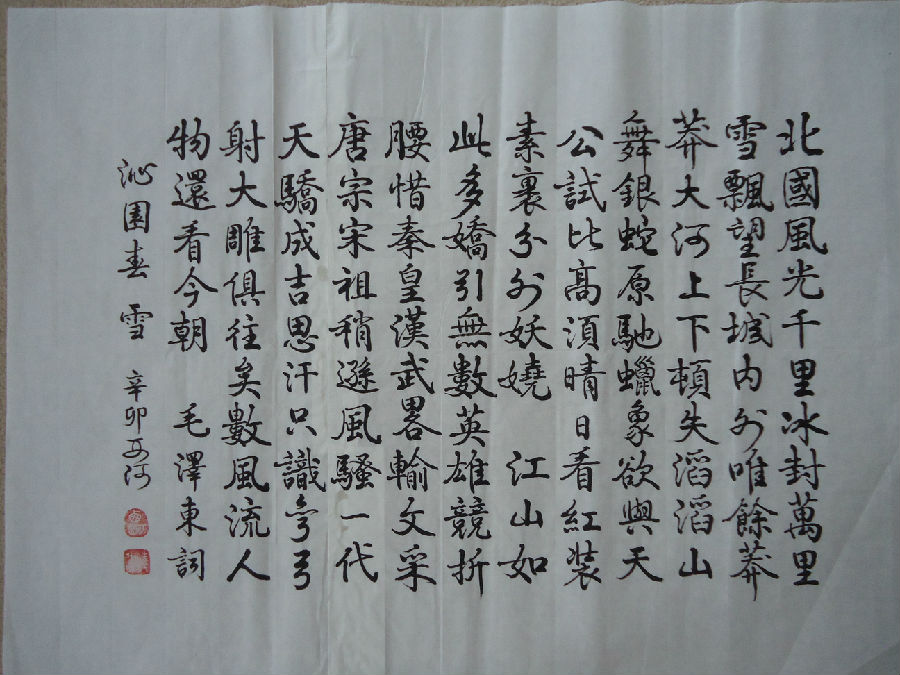 北國風光千里冰封萬里
雪飄望長城内外唯餘莽
莽大河上下頓失滔滔山
舞銀蛇原馳蠟象欲與天
公試比高須晴日看紅裝
素裹分外妖嬈 江山如
此多嬌引無數英雄競折
腰惜秦皇漢武畧輸文采
唐宗宋祖稍遜風騷一代
天驕成吉思汗只識弯弓
射大雕俱往矣數風流人
物還看今朝 毛澤東詞
沁園春 雪 辛卯